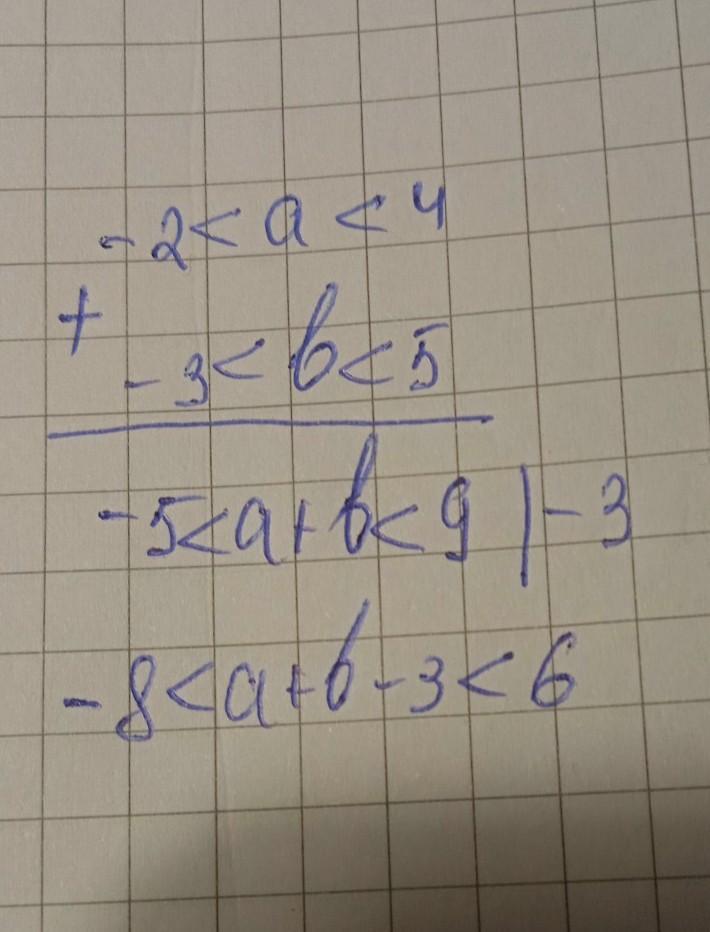 -2 < a < 4
+
-3 < b < 5
-5 < a + b < 9 | - 3
-8 < a + b - 3 < 6